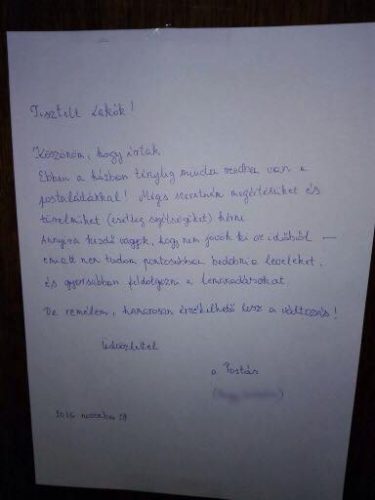 Tisztelt Lakók!
Köszönöm, hogy írtak.
Ebben a házban tényleg minden rendben van a
postaládákkal! Mégis szeretném megértésüket és
türelmüket (esetleg segítségüket) kérni.
Annyira kezdő vagyok, hogy nem jövök ki az időből —
emiatt nem tudom pontosabban bedobni a leveleket,
és gyorsabban feldolgozni a lemaradásokat.
De remélem, hamarosan érzékelhető lesz a változás!
Üdvözlettel
a Postás
2016. november 29.